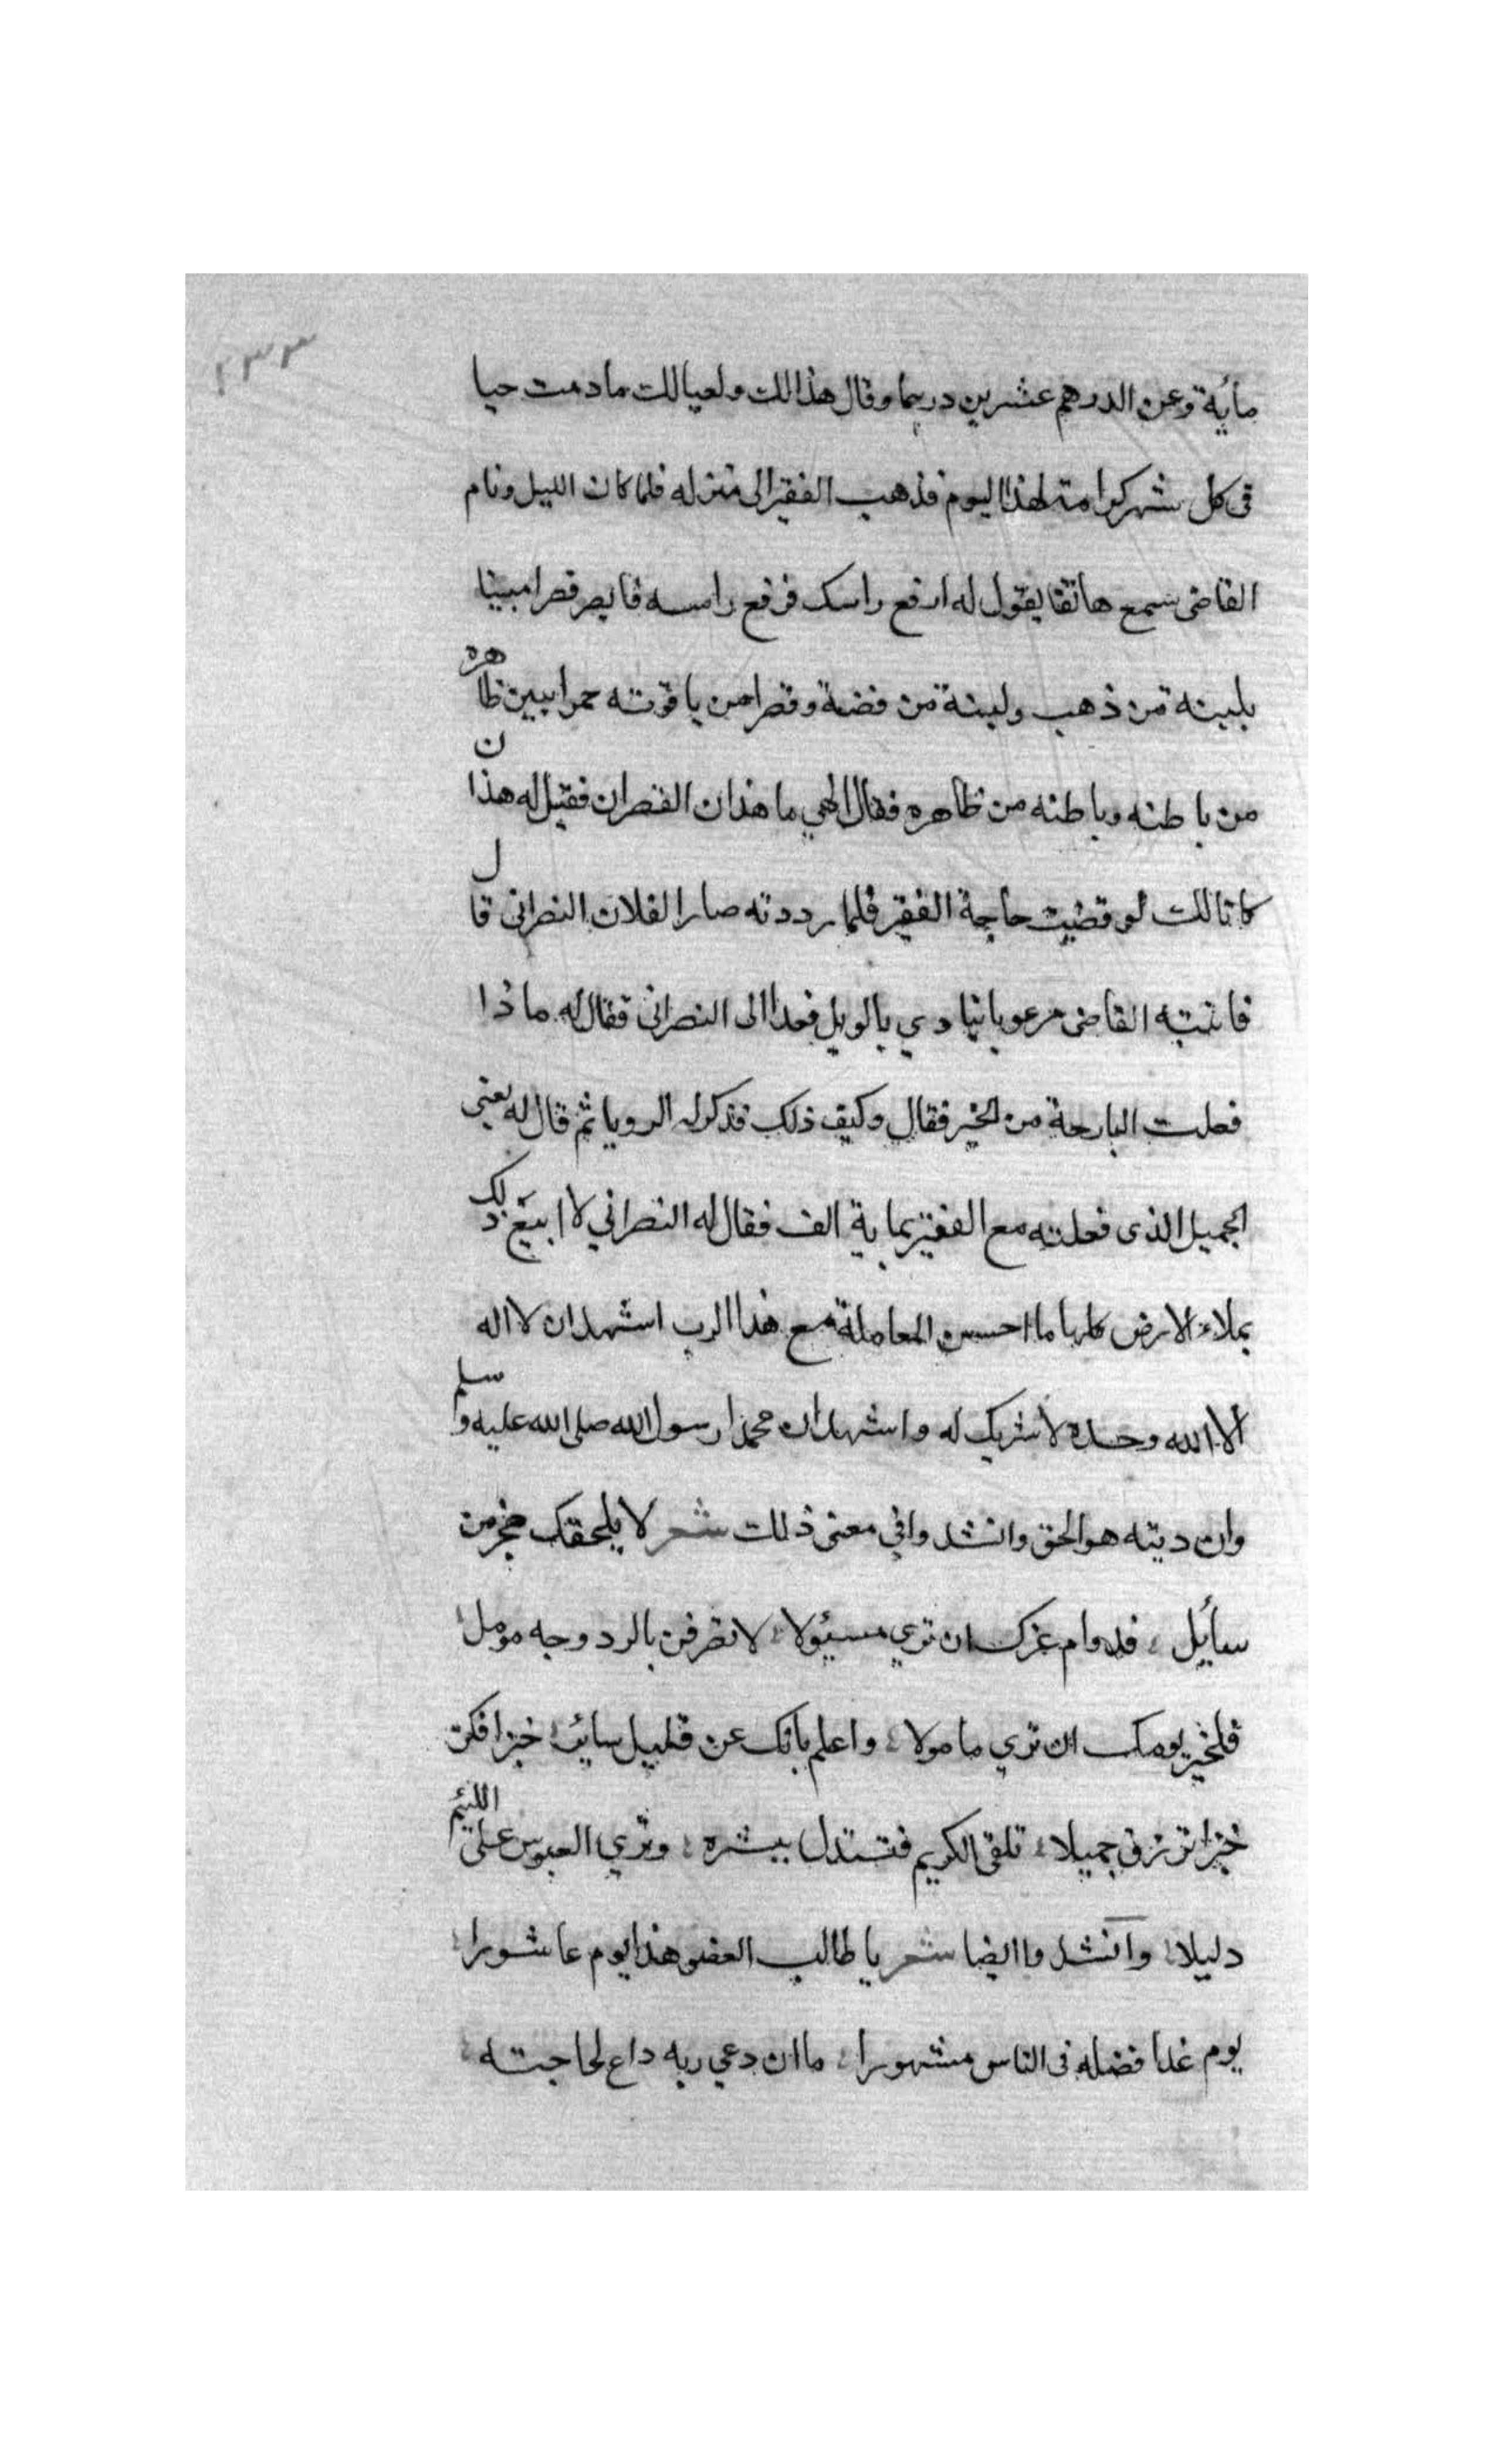 ٢٣٣
مأية وعن الدرهم عشرين درهما وقال هذا لك ولعيالك ما دمت حيا
فى كل شهر كرامة لهذا اليوم فذهب الفقير الى منزله فلما كان الليل ونام
القاضى سمع هاتفا يقول له ارفع راسك فرفع راسه فابصر قصرا مبينا
بلبنة من ذهب ولبنة من فضة وقصرا من ياقوته حمرا يبين ظاهره
من باطنه وباطنه من ظاهره فقال الهي ما هذان القصران فقيل له هذان
كانا لك لو قضيت حاجة الفقير فلما رددته صارا لفلان النصرانى قال
فانتبه القاضى مرعوبا ينادي بالويل فغدا الى النصرانى فقال له ماذا
فعلت البارحة من الخير فقال وكيف ذلك فذكر له الرويا ثم قال له بعنى
الجميل الذى فعلته مع الفقير بماية الف فقال له النصراني لا ابيع ذلك
بملاء الارض كلها ما احسن المعاملة مع هذا الرب اشهد ان لا اله
الا الله وحده لا شريك له واشهد ان محمدا رسول الله صلى الله عليه وسلم
وان دينه هو الحق وانشدوا في معنى ذلك شعر لا يلحقنك ضجر من
سأيل ؛ فدوام عزك ان تري مسئولا ؛ لا تصرفن بالرد وجه مومل ؛
فلخير يومك ان تري مامولا ؛ واعلم بانك عن قليل ساير ؛ خبرا فكن
خبرا ترزق جميلا ؛ تلقى الكريم فتستدل ببشره ؛ وتري العبوس على اللئيم
دليلا ؛ وانشدوا ايضا شعر يا طالب العفو هذا يوم عاشورا ؛
يوم غدا فضله فى الناس مشهورا ؛ ما ان دعي ربه داع لحاجته ؛